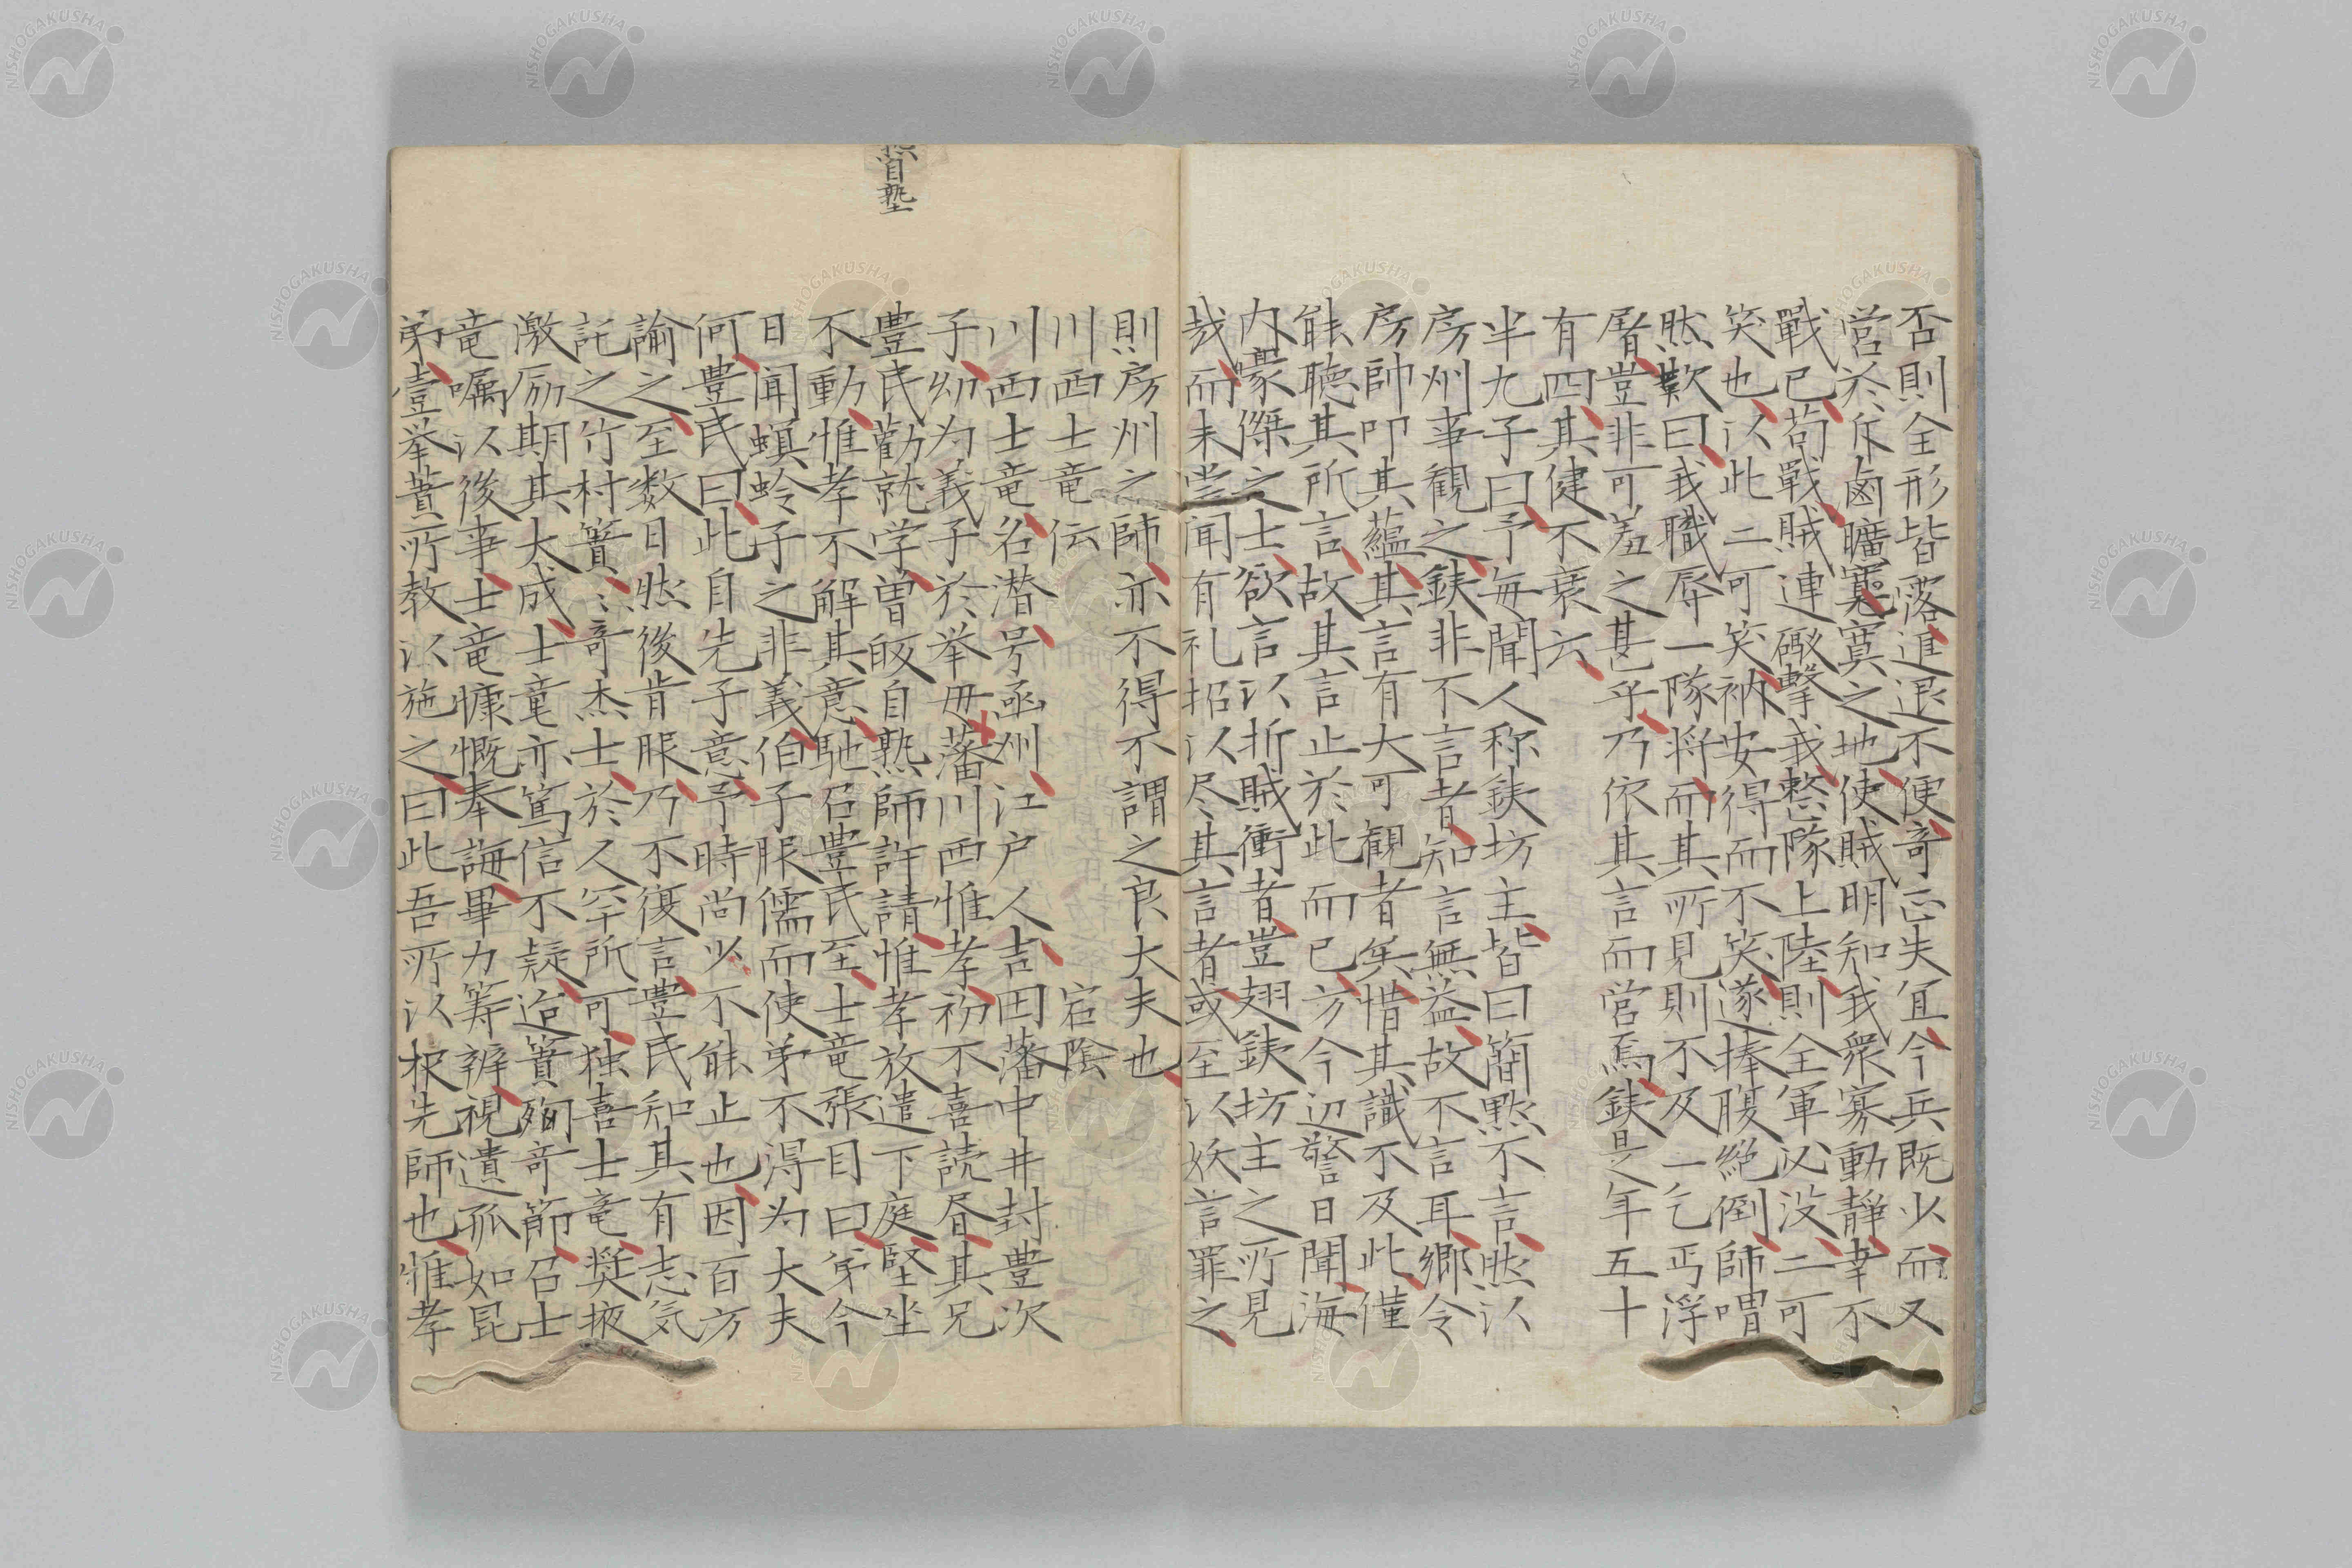 否則全形皆露進退不便奇正失宜今兵既少而又
営於斥鹵曠寞之地使賊明知我衆寡動静幸不
戰已苟戰賊連礟撃我整隊上陸則全軍必没二可
笑也以此二可笑衲安得而不笑遂捧腹絶倒師喟
然歎曰我職辱一隊将而其所見則不及一乞丐浮
屠豈非可羞之甚乎乃依其言而営焉鋏是年五十
有四其健不衰云
半九子曰予毎聞人称鋏坊主皆曰簡黙不言然以
房州事観之鋏非不言者知言無益故不言耳郷令
房帥叩其蘊其言有大可観者矣惜其識不及此僅
能聴其所言故其言止於此而已方今辺警日聞海
内豪傑之士欲言以折賊衝者豈翅鋏坊主之所見
哉而未嘗聞有礼招以尽其言者或至以妖言罪之
則房州之師亦不得不謂之良大夫也
川西士竜伝 宕陰
川西士竜名潜号函州江戸人吉田藩中井封豊次
子幼为義子於挙母藩川西惟孝初不喜読昼其兄
豊民勧就学曽皈自熟師許請惟孝放遣下庭堅坐
不動惟孝不解其意馳召豊民至士竜張目曰弟今
日聞螟蛉子之非義伯子服儒而使弟不得为大夫
何豊民曰此自先子意予時尚少不能止也因百方
諭之至数日然後肯服乃不復言豊民知其有志気
託之竹村簣〻奇杰士於人罕所可独喜士竜奨掖
激励期其大成士竜亦篤信不疑迨簣殉奇節召士
竜嘱以後事士竜慷慨奉誨畢力筹辨視遺孤如昆
弟壹挙簣所教以施之曰此吾所以根先師也惟孝
自塾
NISHOGAKUSHA